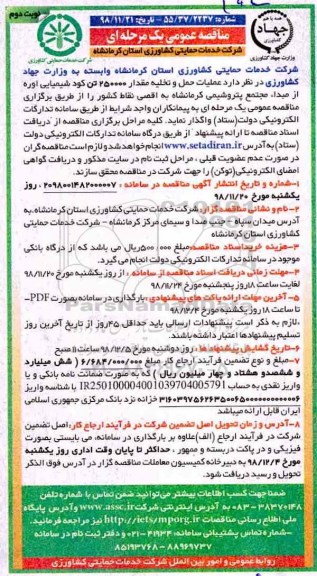 نوبت دوم
شماره: ۵۵/۳۷/۲۲۳۷ - تاریخ: ۹۸/۱۱/۲۱
مناقصه عمومی یک مرحله ای
شرکت خدمات حمایتی کشاورزی استان کرمانشاه
جهاد
وزارت جهاد کشاورزی
شرکت خدمات حمایتی کشاورزی
شرکت خدمات حمایتی کشاورزی استان کرمانشاه وابسته به وزارت جهاد
کشاورزی در نظر دارد عملیات حمل و تخلیه مقدار ۲۵۰۰۰۰ تن کود شیمیایی اوره
از مبداء مجتمع پتروشیمی کرمانشاه به اقصی نقاط کشور را از طریق برگزاری
مناقصه عمومی یک مرحله ای به پیمانکاران واجد شرایط از طریق سامانه تدارکات
الکترونیکی دولت(ستاد) واگذار نماید. کلیه مراحل برگزاری مناقصه از دریافت
اسناد مناقصه تا ارائه پیشنهاد از طریق درگاه سامانه تدارکات الکترونیکی دولت
(ستاد) به آدرس www.setadiran.ir انجام خواهد شد ولازم است مناقصه گران
در صورت عدم عضویت قبلی ، مراحل ثبت نام در سایت مذکور و دریافت گواهی
امضای الکترونیکی(توکن) را جهت شرکت در مناقصه محقق سازند.
۱-شماره و تاریخ انتشار آگهی مناقصه در سامانه : ۲۰۹۸۰۰۱۴۸۲۰۰۰۰۰۷ ، روز
یکشنبه مورخ ۹۸/۱۱/۲۰
۲-نام و نشانی مناقصه گزار: شرکت خدمات حمایتی کشاورزی استان کرمانشاه، به
آدرس میدان سپاه - جنب صدا و سیمای مرکز کرمانشاه - شرکت خدمات حمایتی
کشاورزی استان کرمانشاه
۳-هزینه خرید اسناد مناقصه: مبلغ ۵۰۰،۰۰۰ ریال می باشد که از درگاه بانکی
موجود در سامانه تدارکات الکترونیکی دولت انجام می گیرد.
۴-مهلت زمانی دریافت اسناد مناقصه از سامانه : از روز یکشنبه مورخ ۹۸/۱۱/۲۰
لغایت ساعت ۱۸ روز پنجشنبه مورخ ۹۸/۱۱/۲۴
۵- آخرین مهلت ارائه پاکت های پیشنهادی: بارگذاری در سامانه بصورت PDF-
تا ساعت ۱۸ روز یکشنبه مورخ ۹۸/۱۲/۴
،لازم به ذکر است پیشنهادات ارسالی باید حداقل ۴۵ روز از تاریخ آخرین روز
تسلیم پیشنهادها اعتبار داشته باشند.
۶-تاریخ گشایش پیشنهادها : روز دوشنبه مورخ ۹۸/۱۲/۵ ساعت ۱۱ صبح
۷-مبلغ و نوع تضمین فرآیند ارجاع کار مبلغ ۶/۶۸۴/۰۰۰/۰۰۰ ( شش میلیارد
و ششصدو هشتاد و چهار میلیون ریال ) که به صورت ضمانت نامه بانکی و یا
واریز نقدی به حساب IR250100004001039704005791 با شناسه واریز
خزانه نزد بانک مرکزی جمهوری اسلامی
ایران قابل ارائه میباشد
۸-آدرس و زمان تحویل اصل تضمین شرکت در فرآیند ارجاع کار، اصل تضمین
شرکت در فرآیند ارجاع (الف)علاوه بر بارگذاری در سامانه، می بایستی بصورت
فیزیکی و در پاکت دربسته و ممهور ، حداکثر تا پایان وقت اداری روز یکشنبه
مورخ ۹۸/۱۲/۴ به دبیرخانه کمیسیون معاملات مناقصه گزار در آدرس فوق الذکر
تحویل و رسید دریافت شود.
ضمنا جهت کسب اطلاعات بیشتر می توانید ضمن تماس با شماره تلفن
۳۸۳۷۰۱۴۸-۰۸۳ به آدرس اینترنتی شرکت www.assc.ir وآدرس پایگاه
ملی اطلاع رسانی مناقصات http://iets/mporg.ir نیز مراجعه فرمایید.
-شماره تماس پشتیبانی سامانه: ۴۱۹۳۴-۰۲۱ و دفتر ثبت نام در سامانه
۸۸۹۶۹۷۳۷ - ۸۵۱۹۳۷۶۸
روابط عمومی و امور بین الملل شرکت خدمات حمایتی کشاورزی